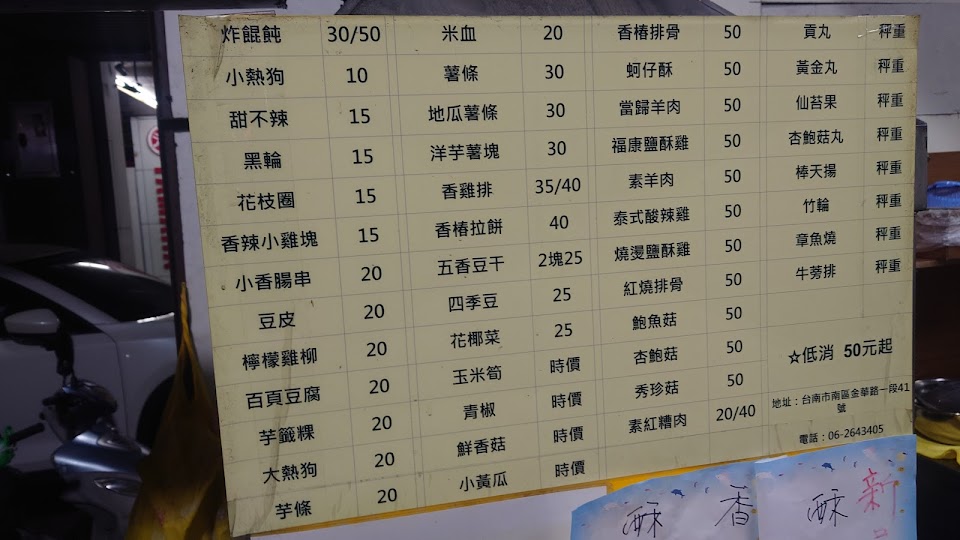 炸餛飩 30/50
小熱狗 10
甜不辣 15
黑輪 15
花枝圈 15
香辣小雞塊 15
小香腸串 20
豆皮 20
檸檬雞柳 20
百頁豆腐 20
芋籤粿 20
大熱狗 20
芋條 20
米血 20
薯條 30
地瓜薯條 30
洋芋薯塊 30
香雞排 35/40
香椿拉餅 40
五香豆干 2塊25
四季豆 25
花椰菜 25
玉米筍 時價
青椒 時價
鮮香菇 時價
小黃瓜 時價
香椿排骨 50
蚵仔酥 50
當歸羊肉 50
福康鹽酥雞 50
素羊肉 50
泰式酸辣雞 50
燒燙鹽酥雞 50
紅燒排骨 50
鮑魚菇 50
杏鮑菇 50
秀珍菇 50
素紅糟肉 20/40
貢丸 秤重
黃金丸 秤重
仙苔果 秤重
杏鮑菇丸 秤重
棒天揚 秤重
竹輪 秤重
章魚燒 秤重
牛蒡排 秤重
☆低消 50元起
地址：台南市南區金華路一段41
號
電話：06-2643405
酥 香 酥 新